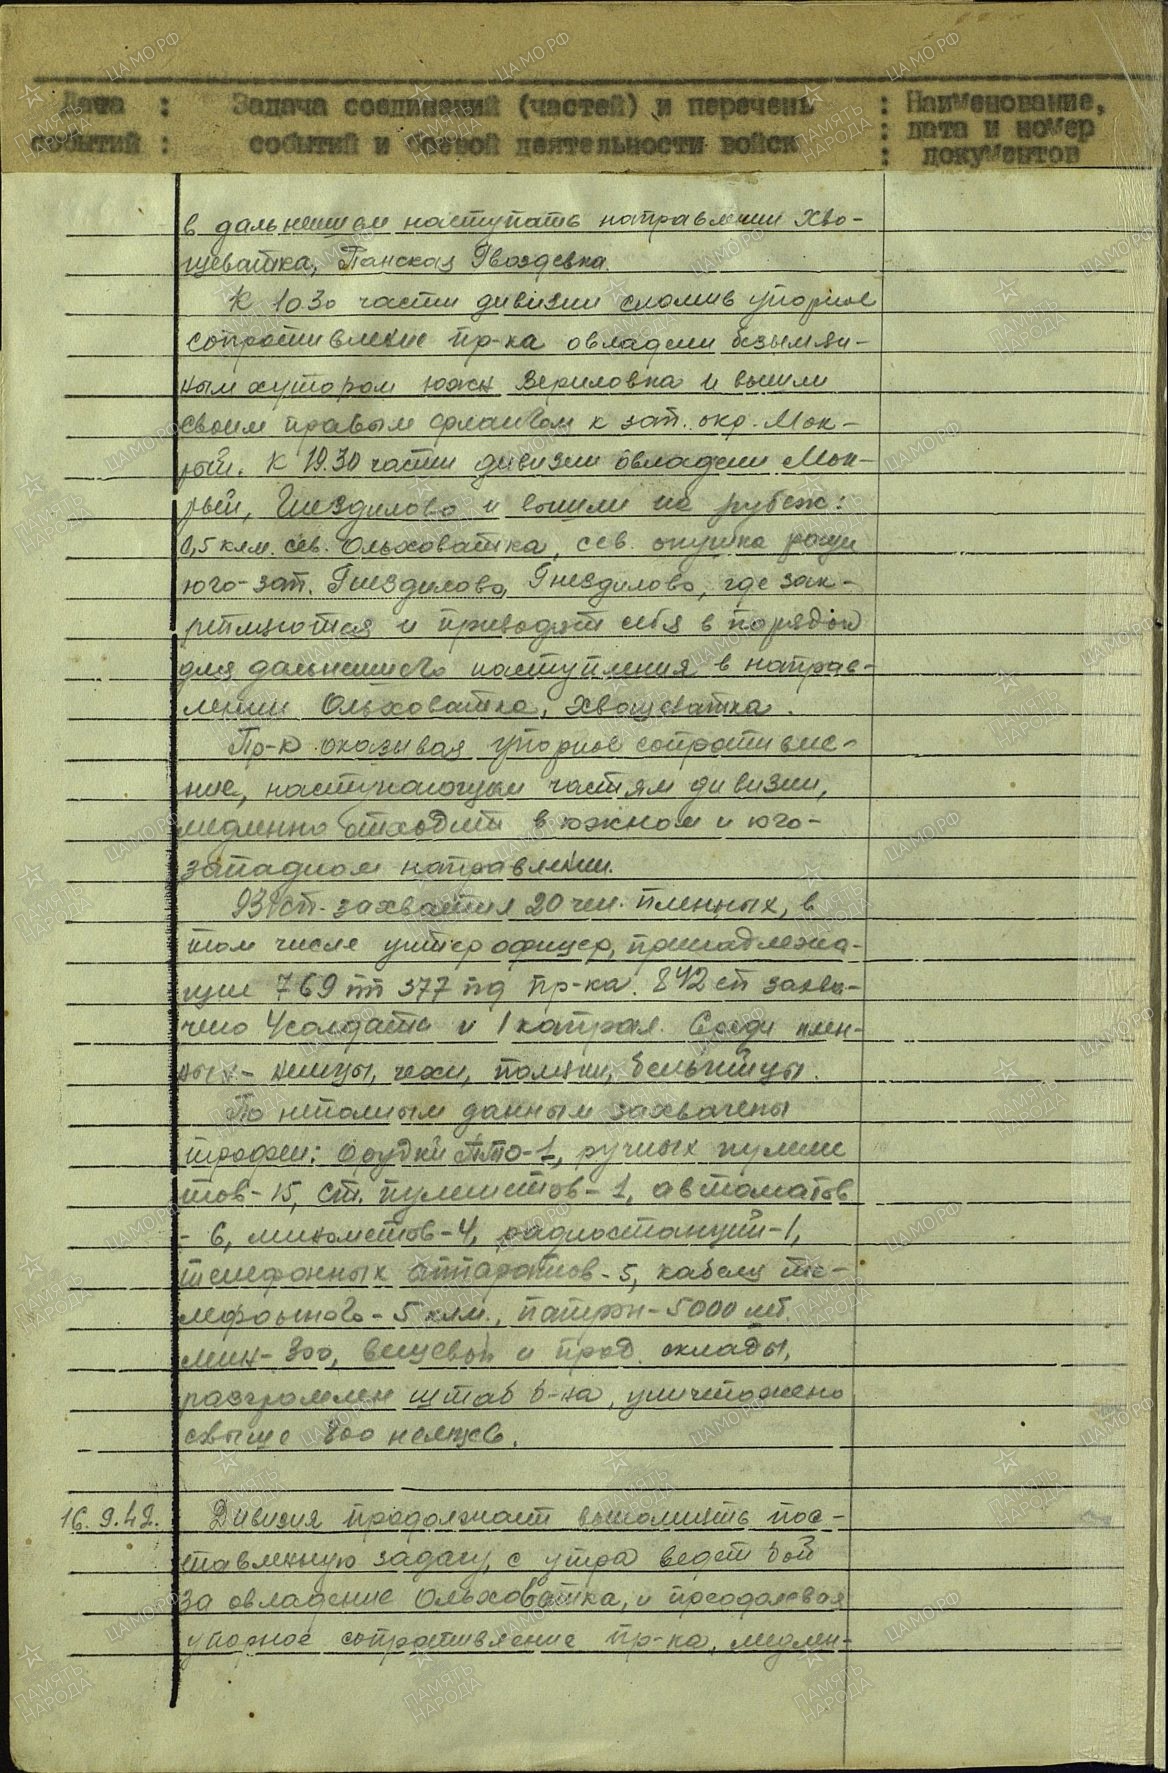 Дата : Задача соединений (частей) и перечень : Наименование,
событий : событий и боевой деятельности войск : дата и номер
: документов
в дальнейшем наступать направлении Хво-
щеватка, Панская Гвоздевка.
К 10.30 части дивизии сломив упорное
сопротивление пр-ка овладели безымян-
ным хутором южн Вериловка и вышли
своим правым флангом к зап. окр. Мок-
рый. К 19.30 части дивизии овладели Мок-
рый, Гнездилово и вышли на рубеж:
0,5 клм. сев. Ольховатка, сев. опушка рощи
юго-зап. Гнездилово, Гнездилово, где зак-
репляются и приводят себя в порядок
для дальнейшего наступления в направ-
лении Ольховатка, Хвощеватка.
Пр-к оказывая упорное сопротивле-
ние, наступающим частям дивизии,
медленно отходит в южном и юго-
западном направлении.
931сп. захватил 20 чел. пленных, в
том числе унтер офицер, принадлежа-
щие 769 пп 377 пд пр-ка. 842 сп захва-
чено 4 солдата и 1 капрал. Среди плен-
ных - немцы, чехи, поляки, бельгийцы.
По неполным данным захвачены
трофеи: орудий ПТО-1, ручных пулеме
тов-15, ст. пулеметов-1, автоматов
- 6, минометов-4, радиостанций-1,
телефонных аппаратов-5, кабеля те-
лефонного-5 клм., патрон-5000 шт.
мин-300, вещевой и прод. склады,
разгромлен штаб б-на, уничтожено
свыше 800 немцев.
16.9.42. Дивизия продолжает выполнять пос-
тавленную задачу, с утра ведет бой
за овладение Ольховатка, и преодолевая
упорное сопротивление пр-ка, медлен-